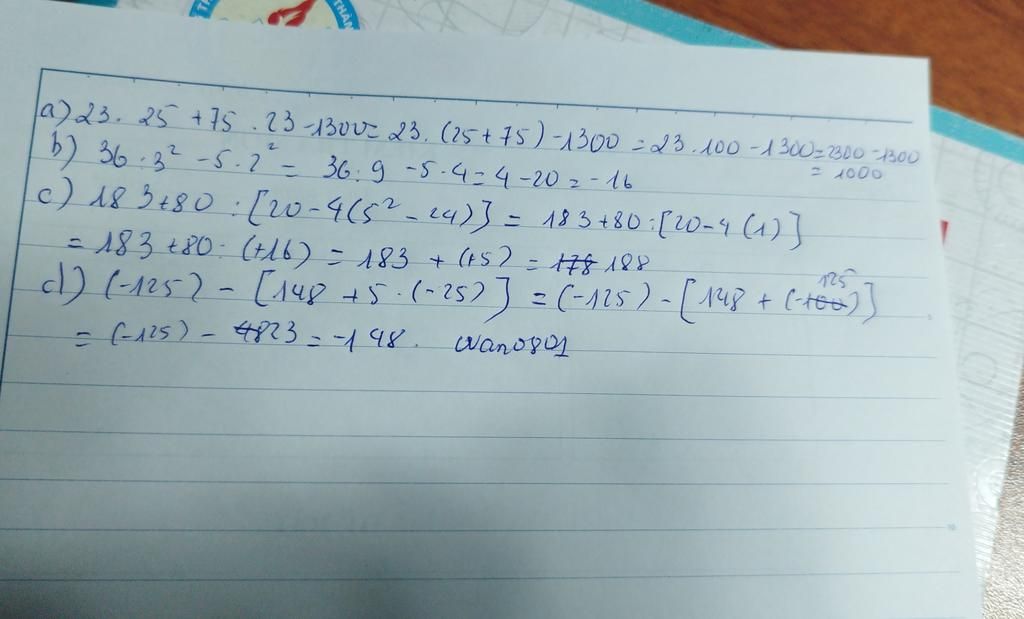 THÀN
a) 23. 25 + 75 . 23 - 1300 = 23. (25 + 75) - 1300 = 23.100 - 1300 = 2300 - 1300
= 1000
b) 36 : 3² - 5 . 2² = 36 : 9 - 5 . 4 = 4 - 20 = -16
c) 183 + 80 : [20 - 4(5² - 24)] = 183 + 80 : [20 - 4(1)]
= 183 + 80 : (+16) = 183 + (+5) = 178 188
d) (-125) - [148 + 5 . (-25)] = (-125) - [148 + (-100 125)]
= (-125) - 4823 = -148. wano801